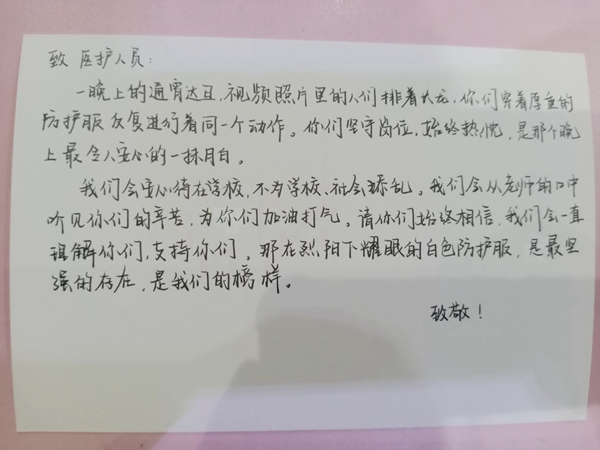 致 医护人员：
一晚上的通宵达旦，视频照片里的人们排着大龙，你们穿着厚重的
防护服反复进行着同一个动作。你们坚守岗位，始终热忱，是那个晚
上最令人安心的一抹月白。
我们会安心待在学校，不为学校、社会添乱。我们会从老师的口中
听见你们的辛苦，为你们加油打气。请你们始终相信，我们会一直
理解你们，支持你们。那在烈阳下耀眼的白色防护服，是最坚
强的存在，是我们的榜样。
致敬！